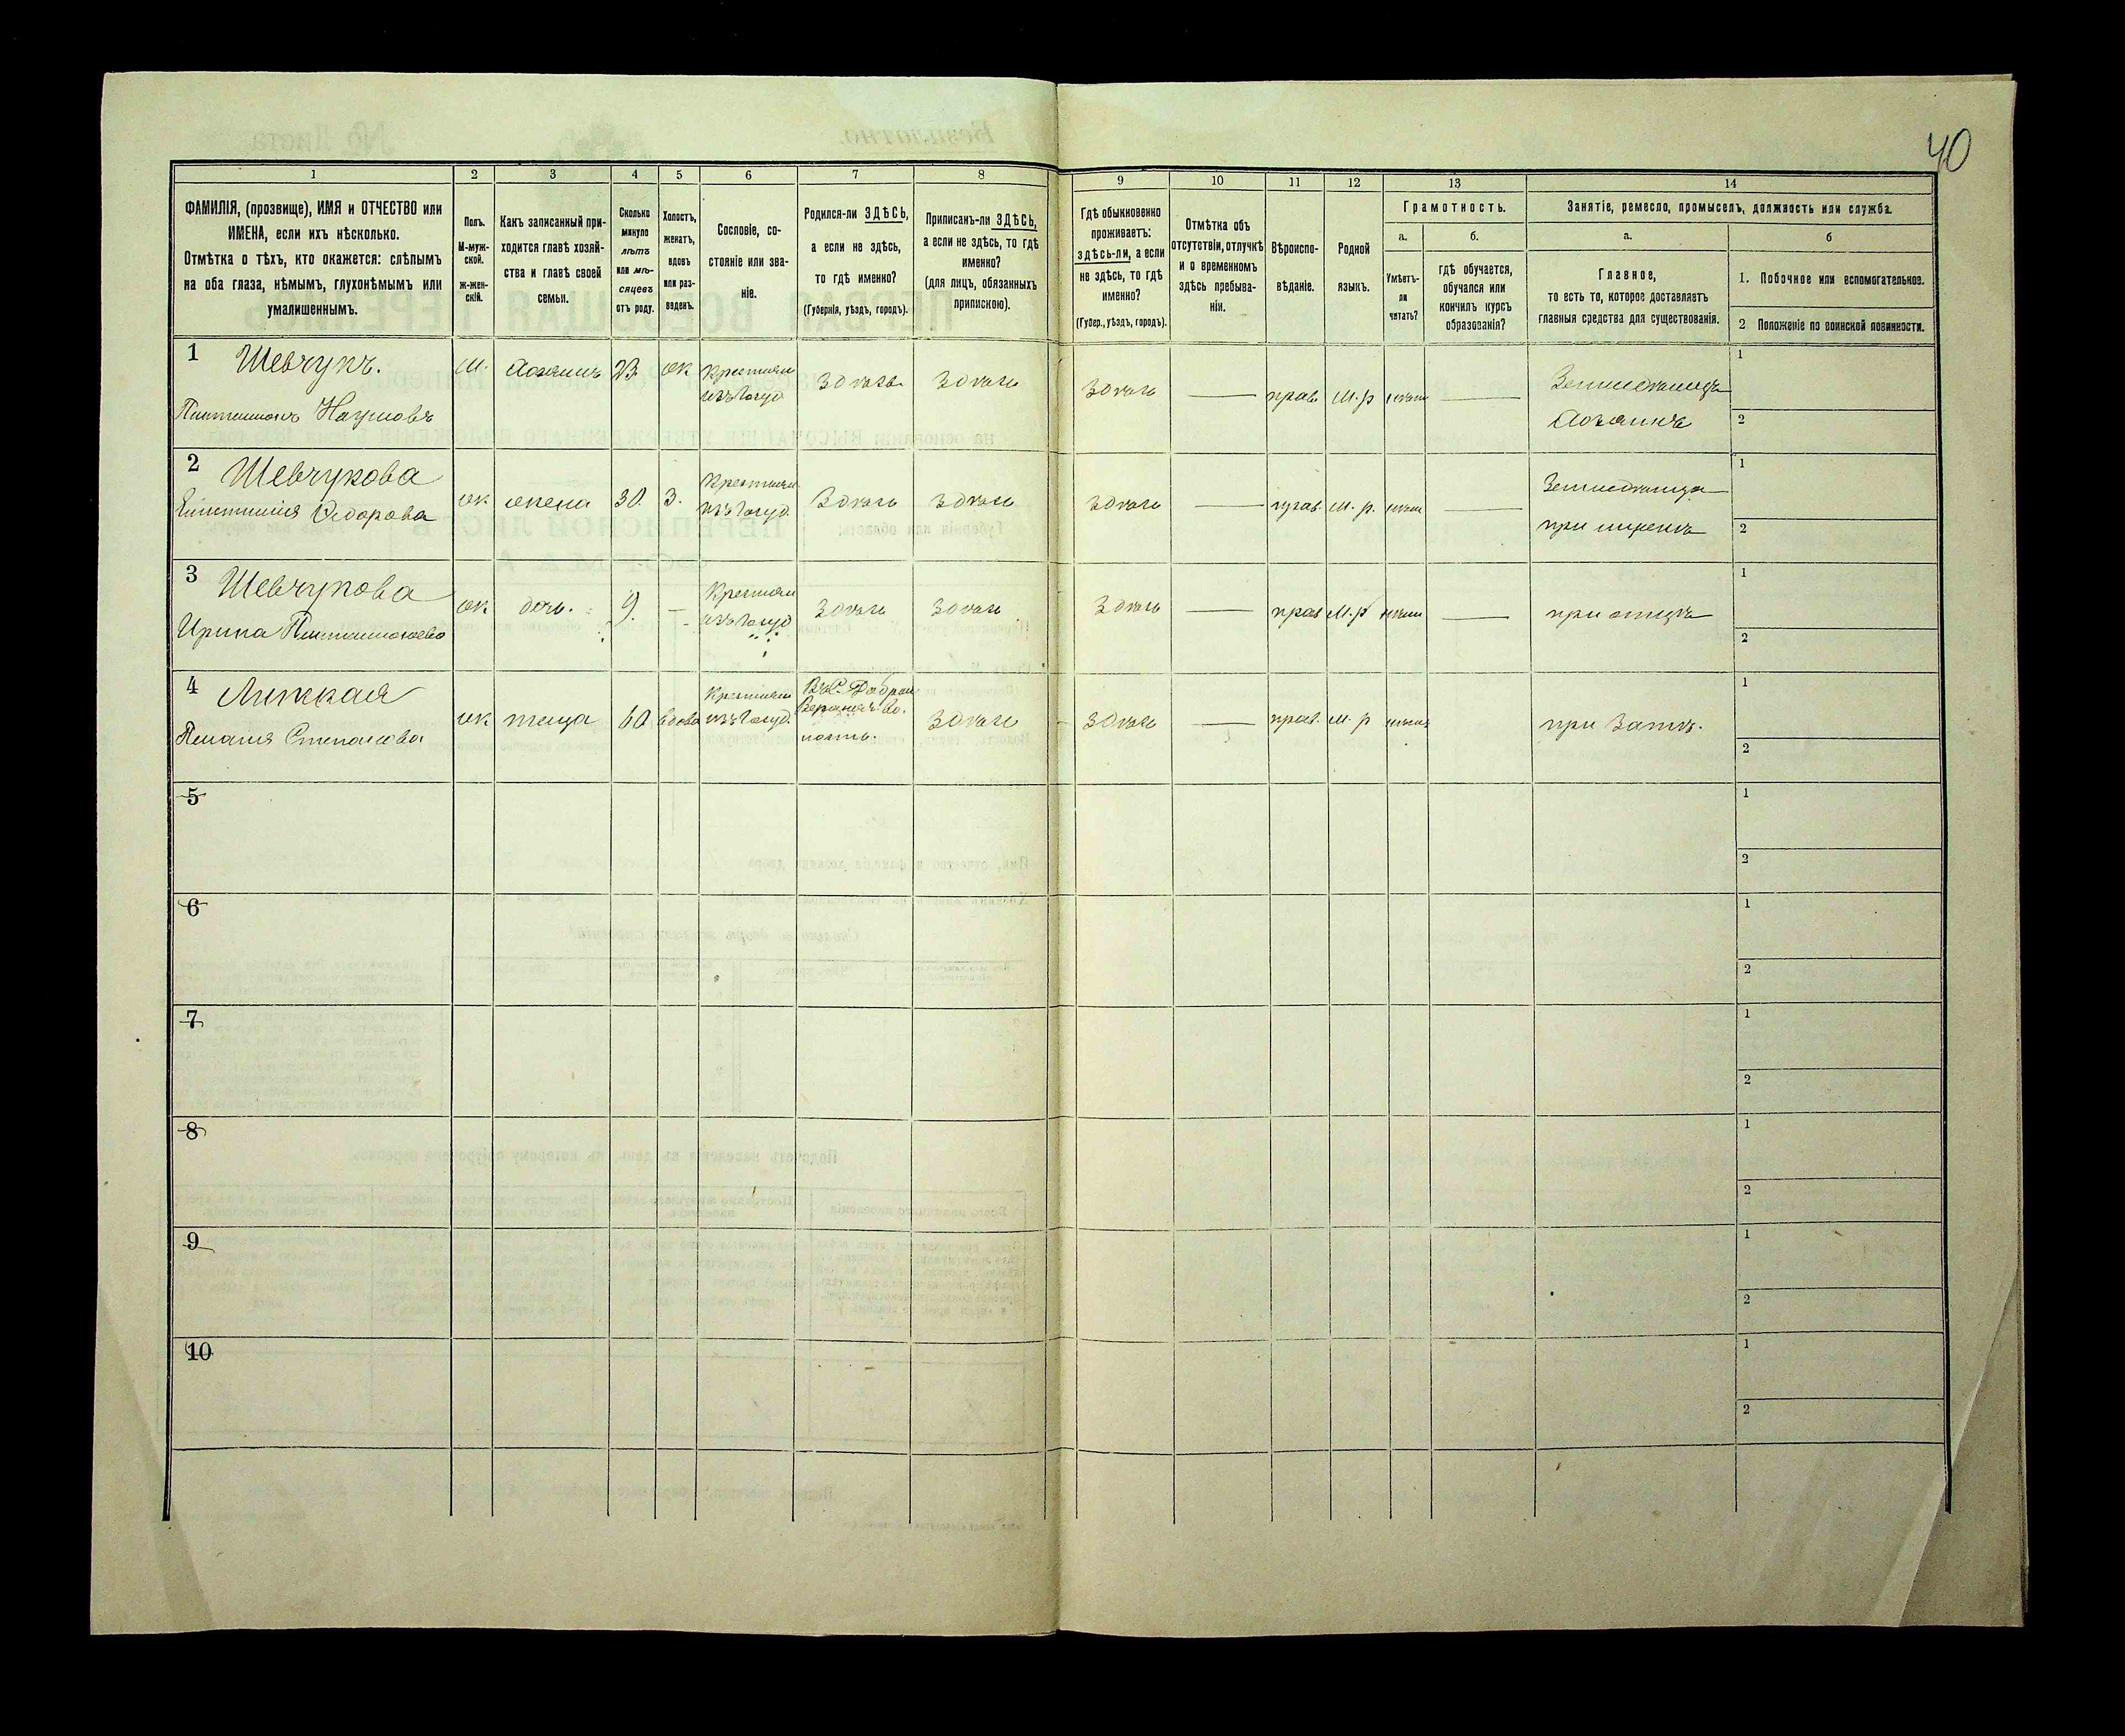 40
1
2
3
4
5
6
7
8
9
10
11
12
13
14
ФАМИЛІЯ, (прозвище), ИМЯ и ОТЧЕСТВО или
ИМЕНА, если ихъ нѣсколько.
Отмѣтка о тѣхъ, кто окажется: слѣпымъ
на оба глаза, нѣмымъ, глухонѣмымъ или
умалишеннымъ.
Полъ.
М-муж-
ской.
ж-жен-
скій.
Какъ записанный при-
ходится главѣ хозяй-
ства и главѣ своей
семьи.
Сколько
минуло
лѣтъ
или мѣ-
сяцевъ
отъ роду.
Холостъ,
женатъ,
вдовъ
или раз-
веденъ.
Сословіе, со-
стояніе или зва-
ніе.
Родился-ли ЗДѢСЬ,
а если не здѣсь,
то гдѣ именно?
(Губернія, уѣздъ, городъ).
Приписанъ-ли ЗДѢСЬ,
а если не здѣсь, то гдѣ
именно?
(для лицъ, обязанныхъ
припискою).
Гдѣ обыкновенно
проживаетъ:
здѣсь-ли, а если
не здѣсь, то гдѣ
именно?
(Губер., уѣздъ, городъ).
Отмѣтка объ
отсутствіи, отлучкѣ
и о временномъ
здѣсь пребыва-
ніи.
Вѣроиспо-
вѣданіе.
Родной
языкъ.
Грамотность.
а.
Умѣетъ-
ли
читать?
б.
гдѣ обучается,
обучался или
кончилъ курсъ
образованія?
Занятіе, ремесло, промыселъ, должность или служба.
а.
Главное,
то есть то, которое доставляетъ
главныя средства для существованія.
б
1. Побочное или вспомогательное.
2 Положеніе по воинской повинности.
1 Шевчукъ.
Наумовъ
м. хозяинъ ж Крестьян
изъ Госуд
здѣсь здѣсь здѣсь прав. м.р
Земледѣлецъ
хозяинъ
1
2
2 Шевчукова
Федорова
ж жена 30. з. Крестьян
изъ Госуд.
здѣсь здѣсь здѣсь прав. м. р.
Земледѣлица
при мужѣ
1
2
3 Шевчукова
Ирина
ж дочь. 9. — Крестьян
изъ Госуд
здѣсь здѣсь здѣсь прав м.р
при отцѣ
1
2
4
Степанова
ж теща 60 вдова Крестьян
изъ Госуд.
здѣсь здѣсь прав. м. р
при Зятѣ.
1
2
5
1
2
6
1
2
7
1
2
8
1
2
9
1
2
10
1
2